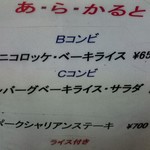 あ・ら・かると
Bコンビ
ニコロッケ・ベーキライス ¥65
Cコンビ
ンバーグベーキライス・サラダ
ポークシャリアンステーキ ¥700
ライス付き